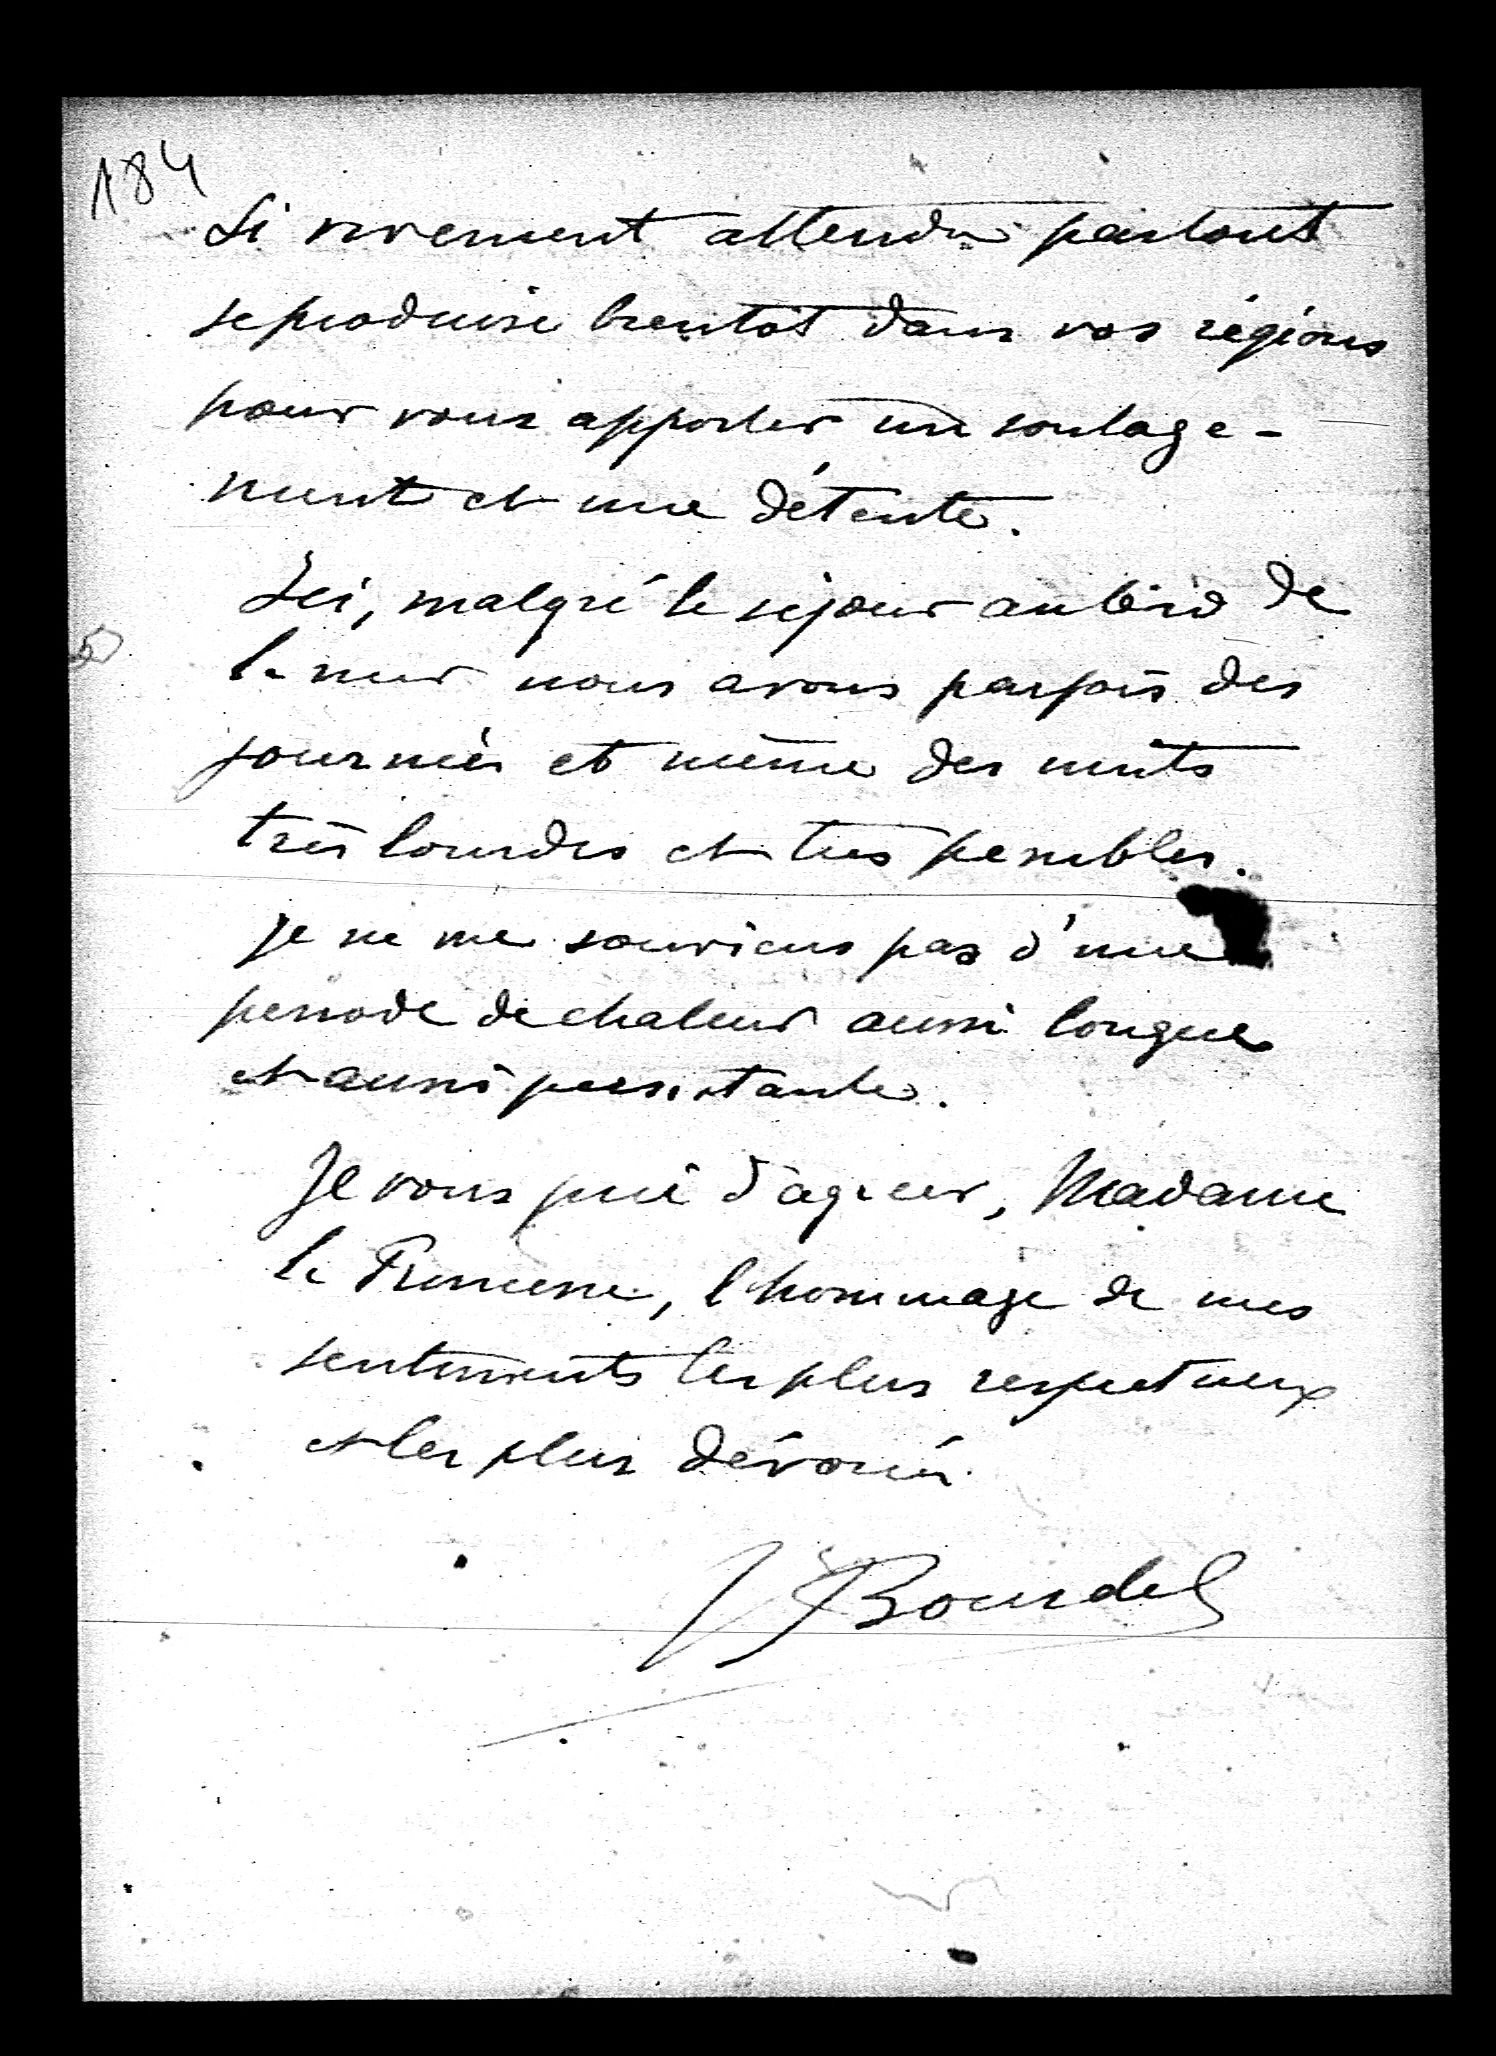 184
si vivement attendu partout
se produise bientôt dans vos régions
pour vous apporter un soulage-
ment et une détente.
Ici, malgré le séjour au bord de
la mer nous avons parfois des
journées et même des nuits
très lourdes et très penibles.
Je ne me souviens pas d'une
periode de chaleur aussi longue
et aussi persistante.
Je vous prie d'agréer, Madame
la Princesse, l'hommage de mes
sentiments les plus respectueux
et les plus dévoués
Bourdel